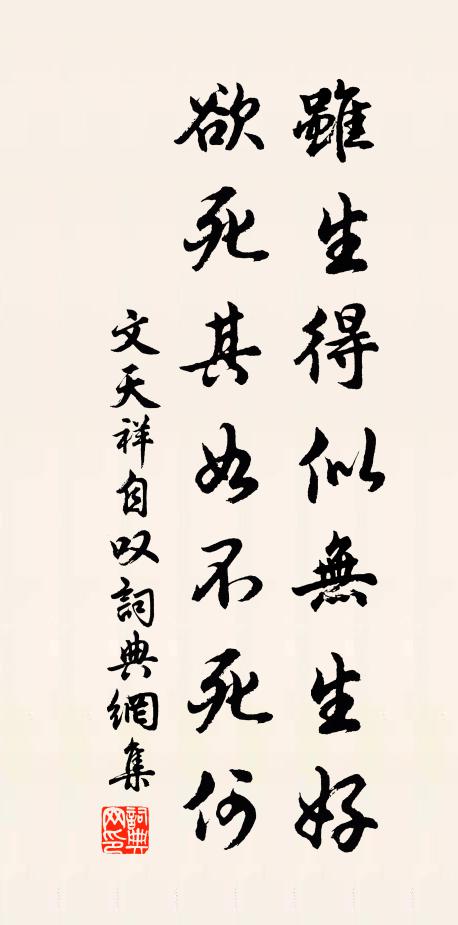 雖生得似無生好
欲死其如不死何
文天祥自叹詞典網集
詞典網印